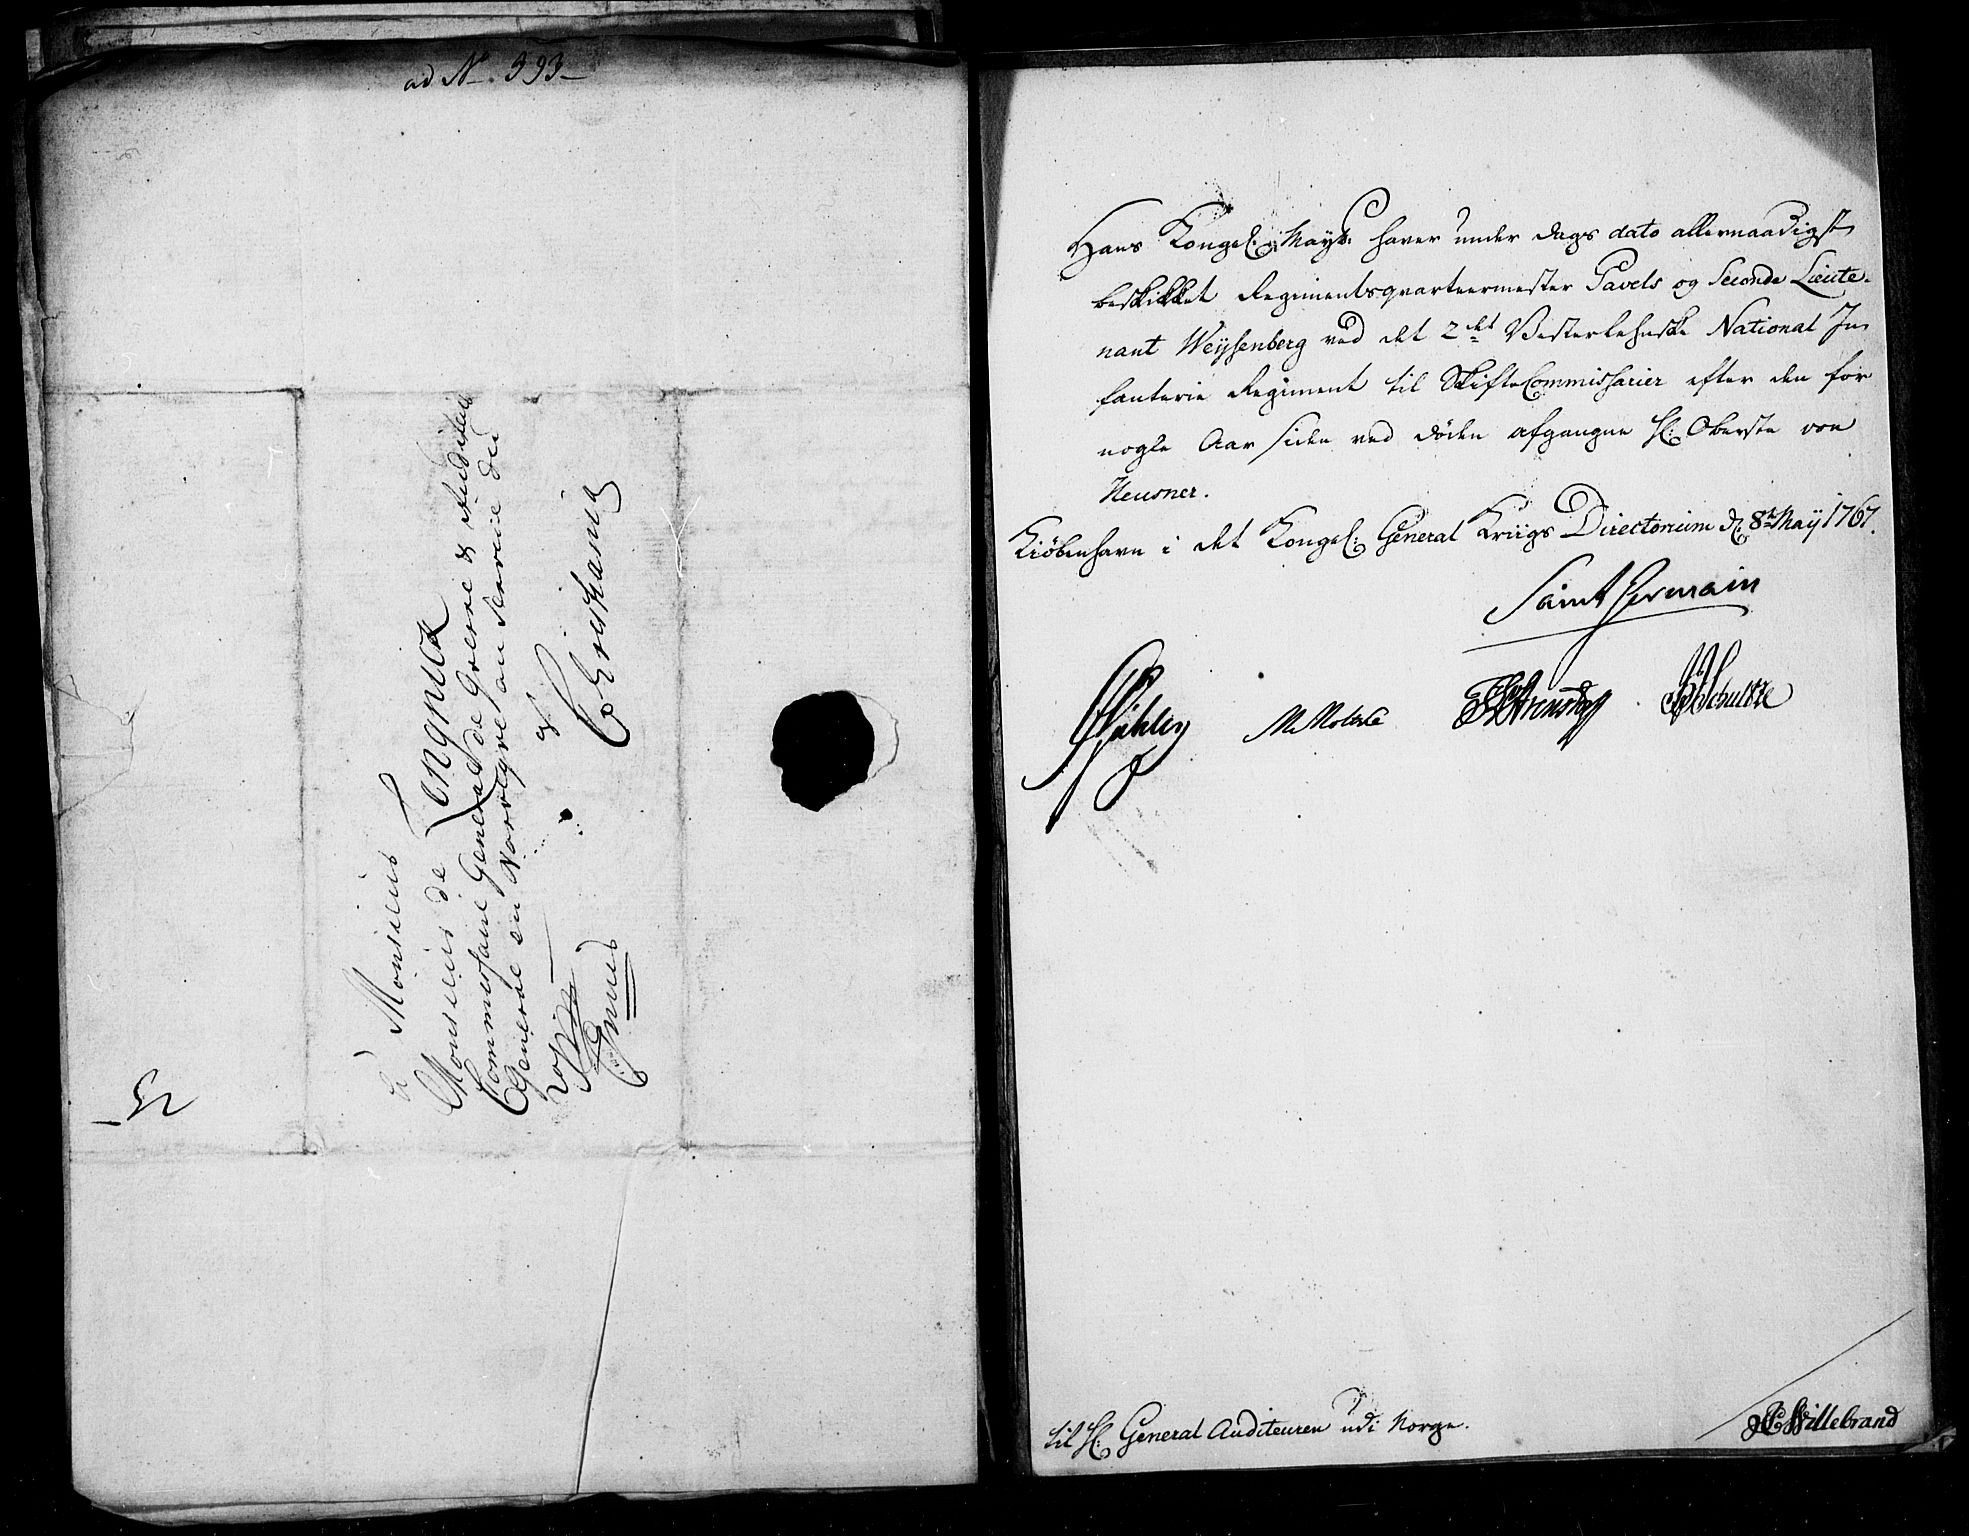 ad No. 593
à Monsieur
Monsieur de Tengnick
Commissaire General de Guerre & Auditeur
General en Norvegve au Service du
à Christiania
52
Hans Kongel: Mayts: haver under Dags dato allernaadigst
beskikket Regimentsqvarteermester Pavels og Seconde Lieute-
nant Weysenberg ved det 2det Vesterlehnske National In
fanterie Regiment til SkifteCommissarier efter den for
nogle Aar siden ved Døden afgangne Hr: Oberste von
Heusner.
Kiöbenhavn i det Kongel: General Kriigs Directorium d: 8te May 1767.
Saint Germain
M Moltke
Schultze
til Hr: General Auditeuren udi Norge.
Willebrand